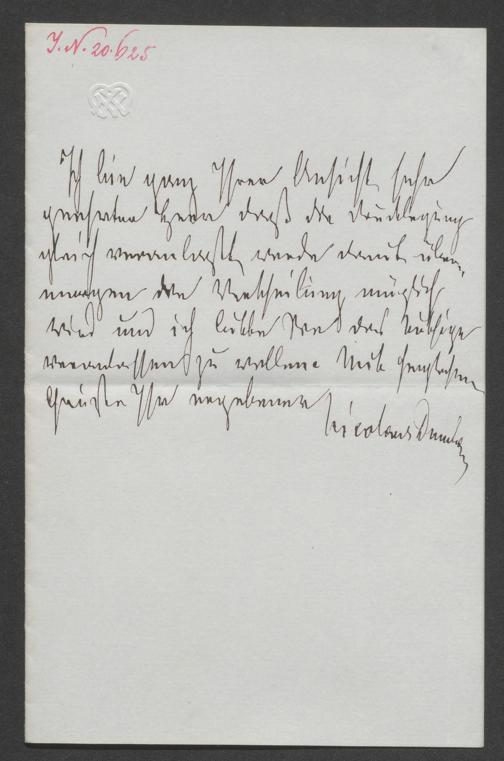 J. N. 20.625
Ich bin ganz Ihrer Ansicht, sehr
geehrter Herr daß die Drucklegung
gleich veranlaßt werde damit über-
morgen die Vertheilung möglich
wird und ich bitte Sie das Nöthige
veranlassen zu wollen. Mit herzlichem
Gruße Ihr ergebener
Nicolaus Dumba